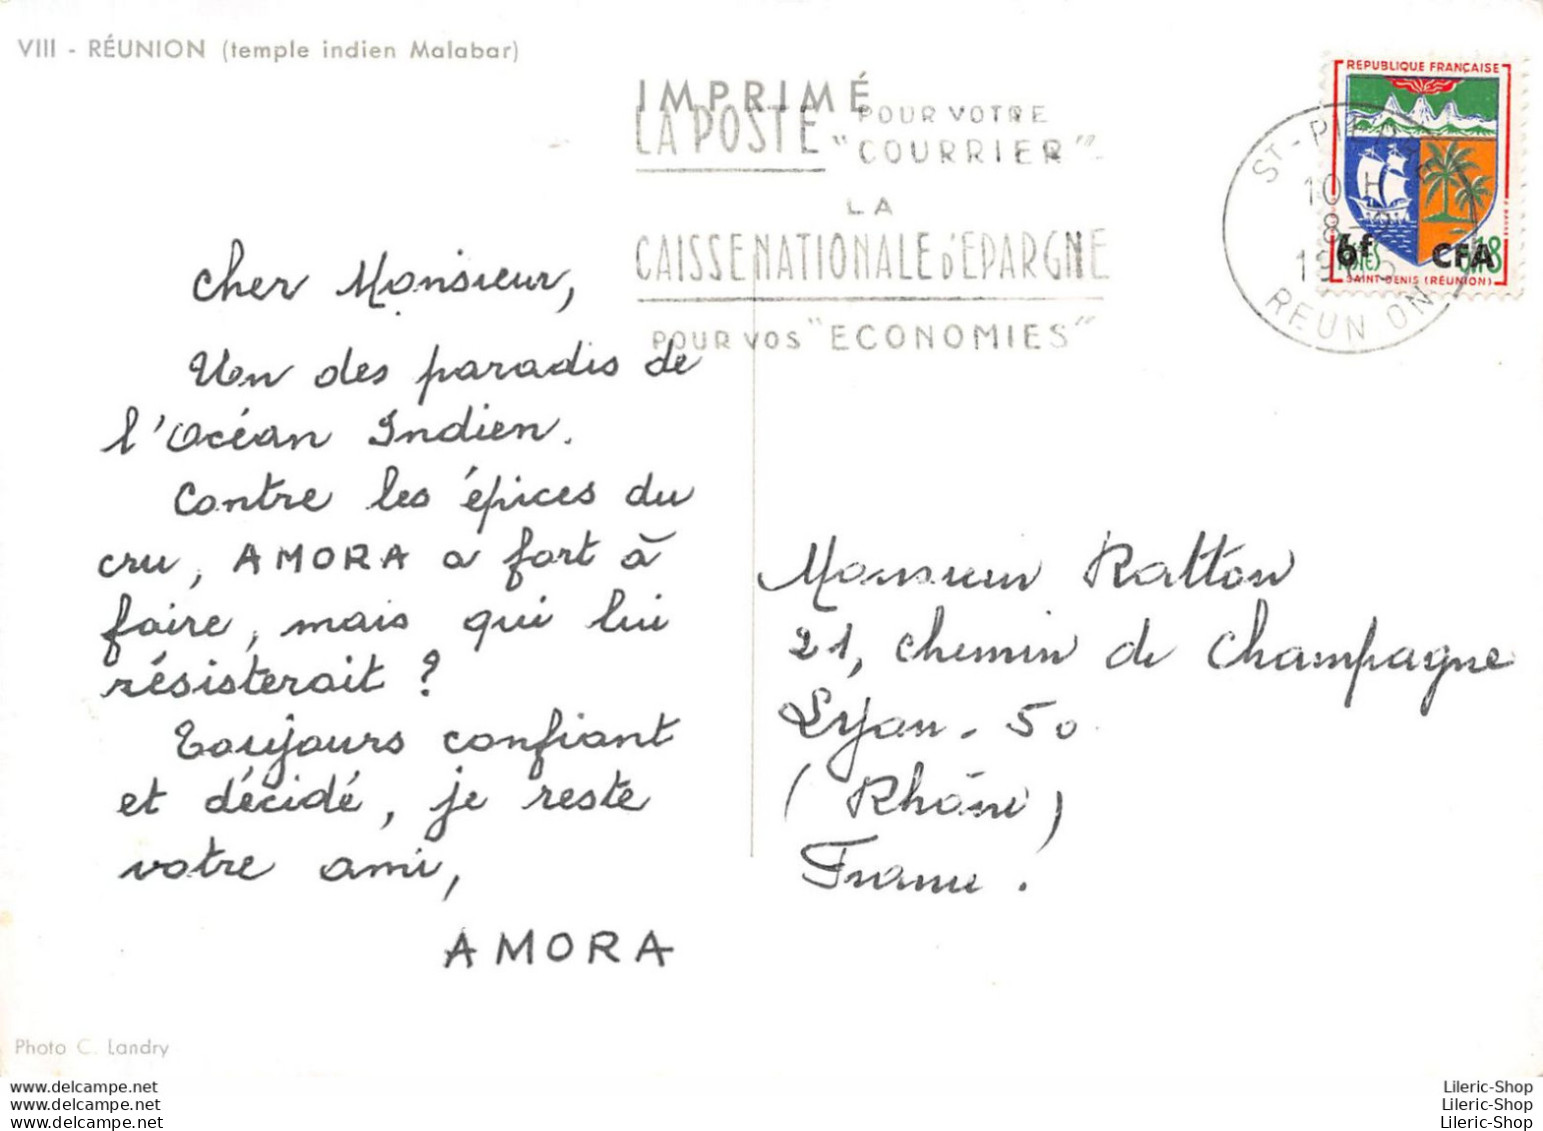 VIII - RÉUNION (temple indien Malabar)
IMPRIMÉ
LA POSTE POUR VOTRE "COURRIER"
LA
CAISSE NATIONALE D'EPARGNE
POUR VOS "ECONOMIES"
REPUBLIQUE FRANÇAISE
6f CFA
POSTES 0,18
SAINT-DENIS (RÉUNION)
ST-PIERRE
10 H
8-9
REUNION
Cher Monsieur,
Un des paradis de
l'Océan Indien.
Contre les épices du
cru, AMORA a fort à
faire, mais qui lui
résisterait ?
Toujours confiant
et décidé, je reste
votre ami,
AMORA
Monsieur Ratton
21, chemin de Champagne
Lyon - 50
(Rhône)
France.
Photo C. Landry
www.delcampe.net
www.delcampe.net
www.delcampe.net
Lileric-Shop
Lileric-Shop
Lileric-Shop